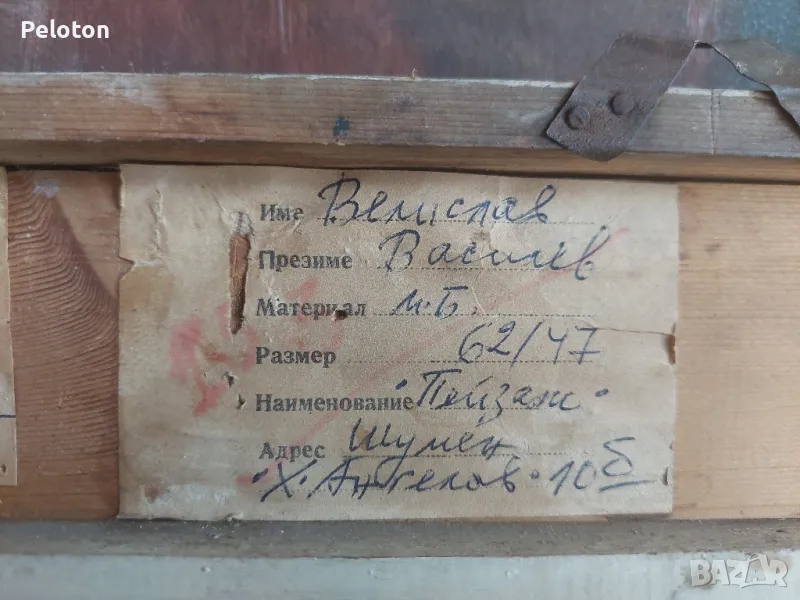 Peloton
Име Велислав
Презиме Василев
Материал м.Б.
Размер 62/47
Наименование "Пейзаж"
Адрес Шумен
"Х. Ангелов" 10 б
BAZAR